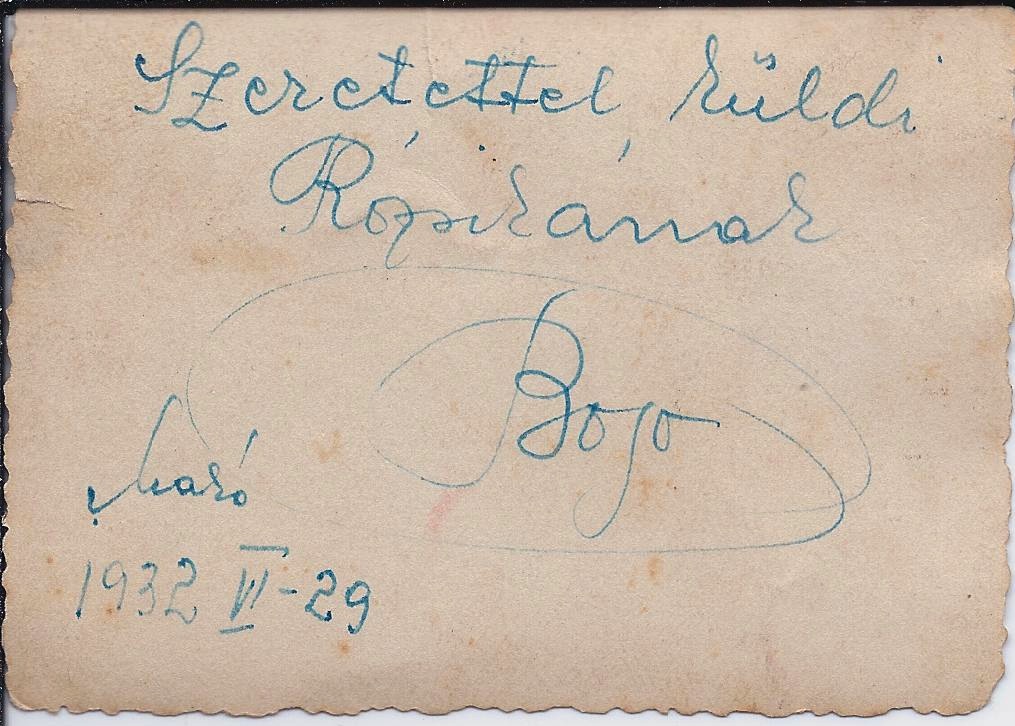 Szeretettel küldi
Rózsikának
Bogo
Makó
1932 VI-29